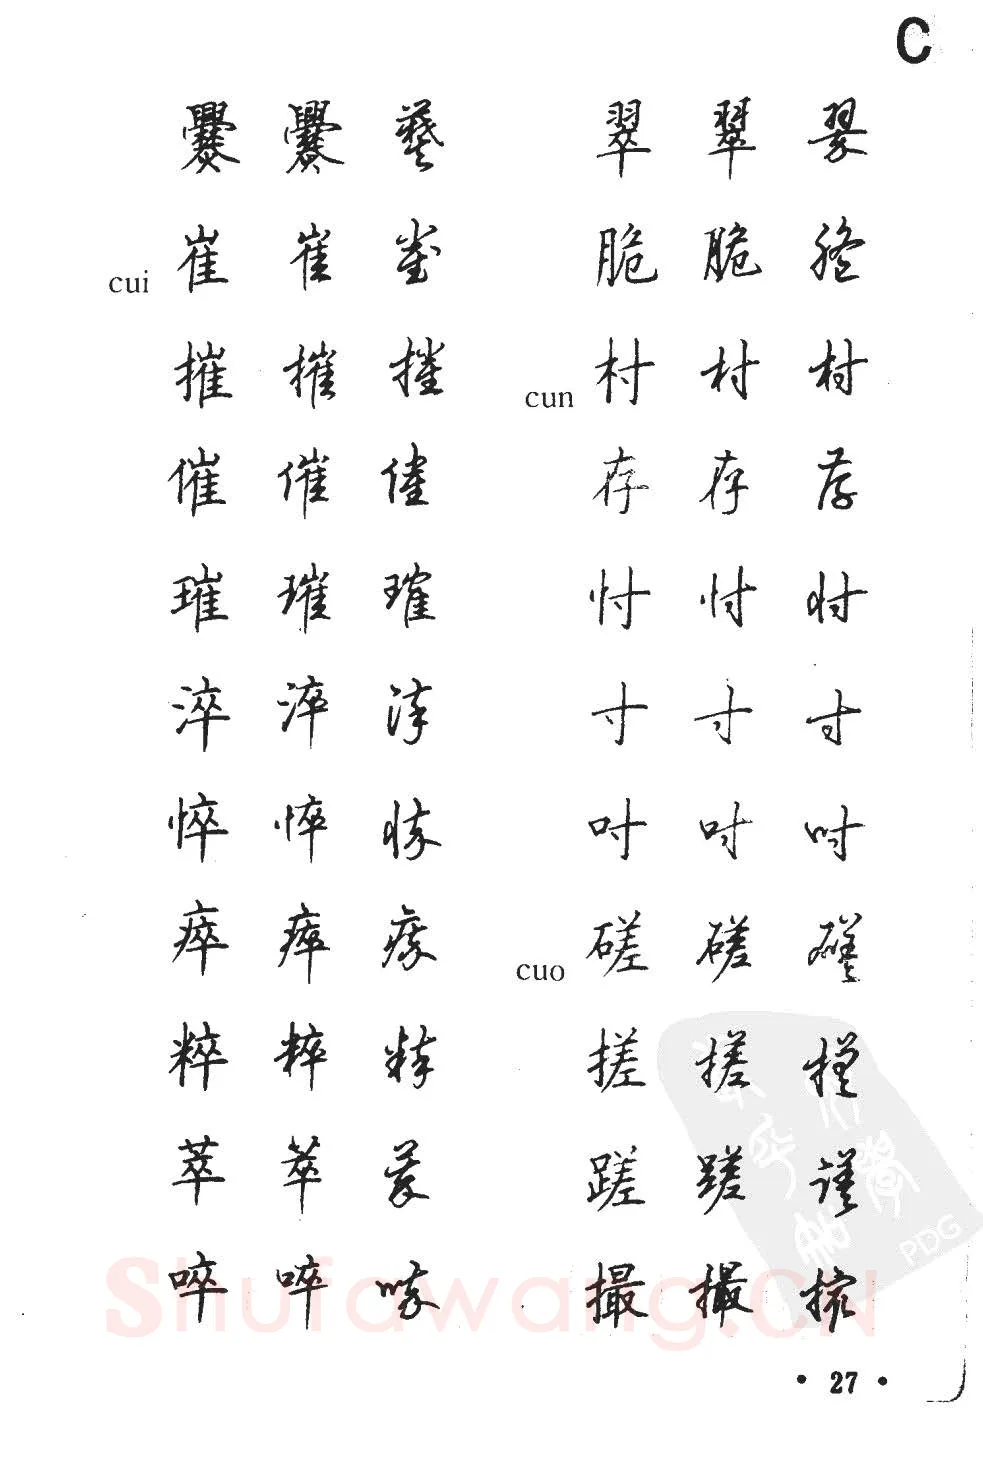 C
爨 爨 爨
cui 崔 崔 崔
摧 摧 摧
催 催 催
璀 璀 璀
淬 淬 淬
悴 悴 悴
瘁 瘁 瘁
粹 粹 粹
萃 萃 萃
啐 啐 啐
翠 翠 翠
脆 脆 脆
cun 村 村 村
存 存 存
忖 忖 忖
寸 寸 寸
吋 吋 吋
cuo 磋 磋 磋
搓 搓 搓
蹉 蹉 蹉
撮 撮 撮
PDG
Shufawang.CN
• 27 •